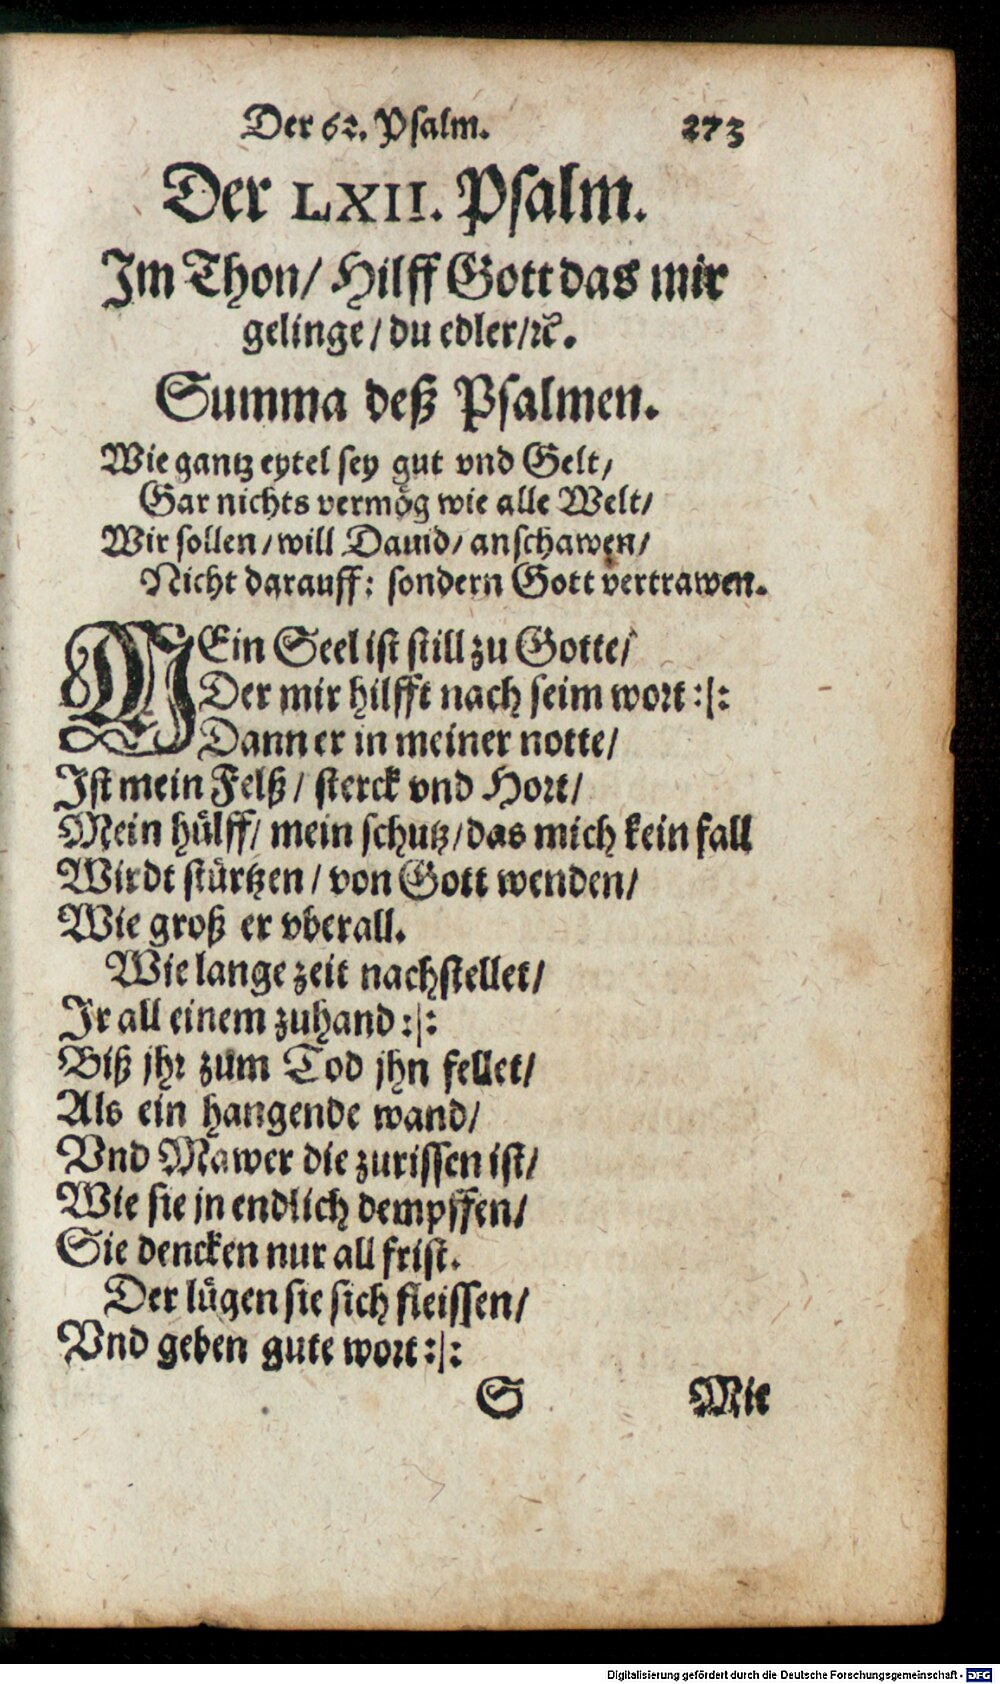 Der 62. Psalm. 273
Der LXII. Psalm.
Im Thon/ Hilff Gott das mir
gelinge/ du edler/ꝛc.
Summa deß Psalmen.
Wie gantz eytel sey gut vnd Gelt/
Gar nichts vermög wie alle Welt/
Wir sollen/ will Dauid/ anschawen/
Nicht darauff: sondern Gott vertrawen.
MEin Seel ist still zu Gotte/
Der mir hilfft nach seim wort :|:
Dann er in meiner notte/
Ist mein Felß/ sterck vnd Hort/
Mein hülff/ mein schutz/ das mich kein fall
Wirdt stürtzen/ von Gott wenden/
Wie groß er vberall.
Wie lange zeit nachstellet/
Ir all einem zuhand :|:
Biß jhr zum Tod jhn fellet/
Als ein hangende wand/
Vnd Mawer die zurissen ist/
Wie sie jn endlich dempffen/
Sie dencken nur all frist.
Der lügen sie sich fleissen/
Vnd geben gute wort :|:
S Mit
Digitalisierung gefördert durch die Deutsche Forschungsgemeinschaft - DFG